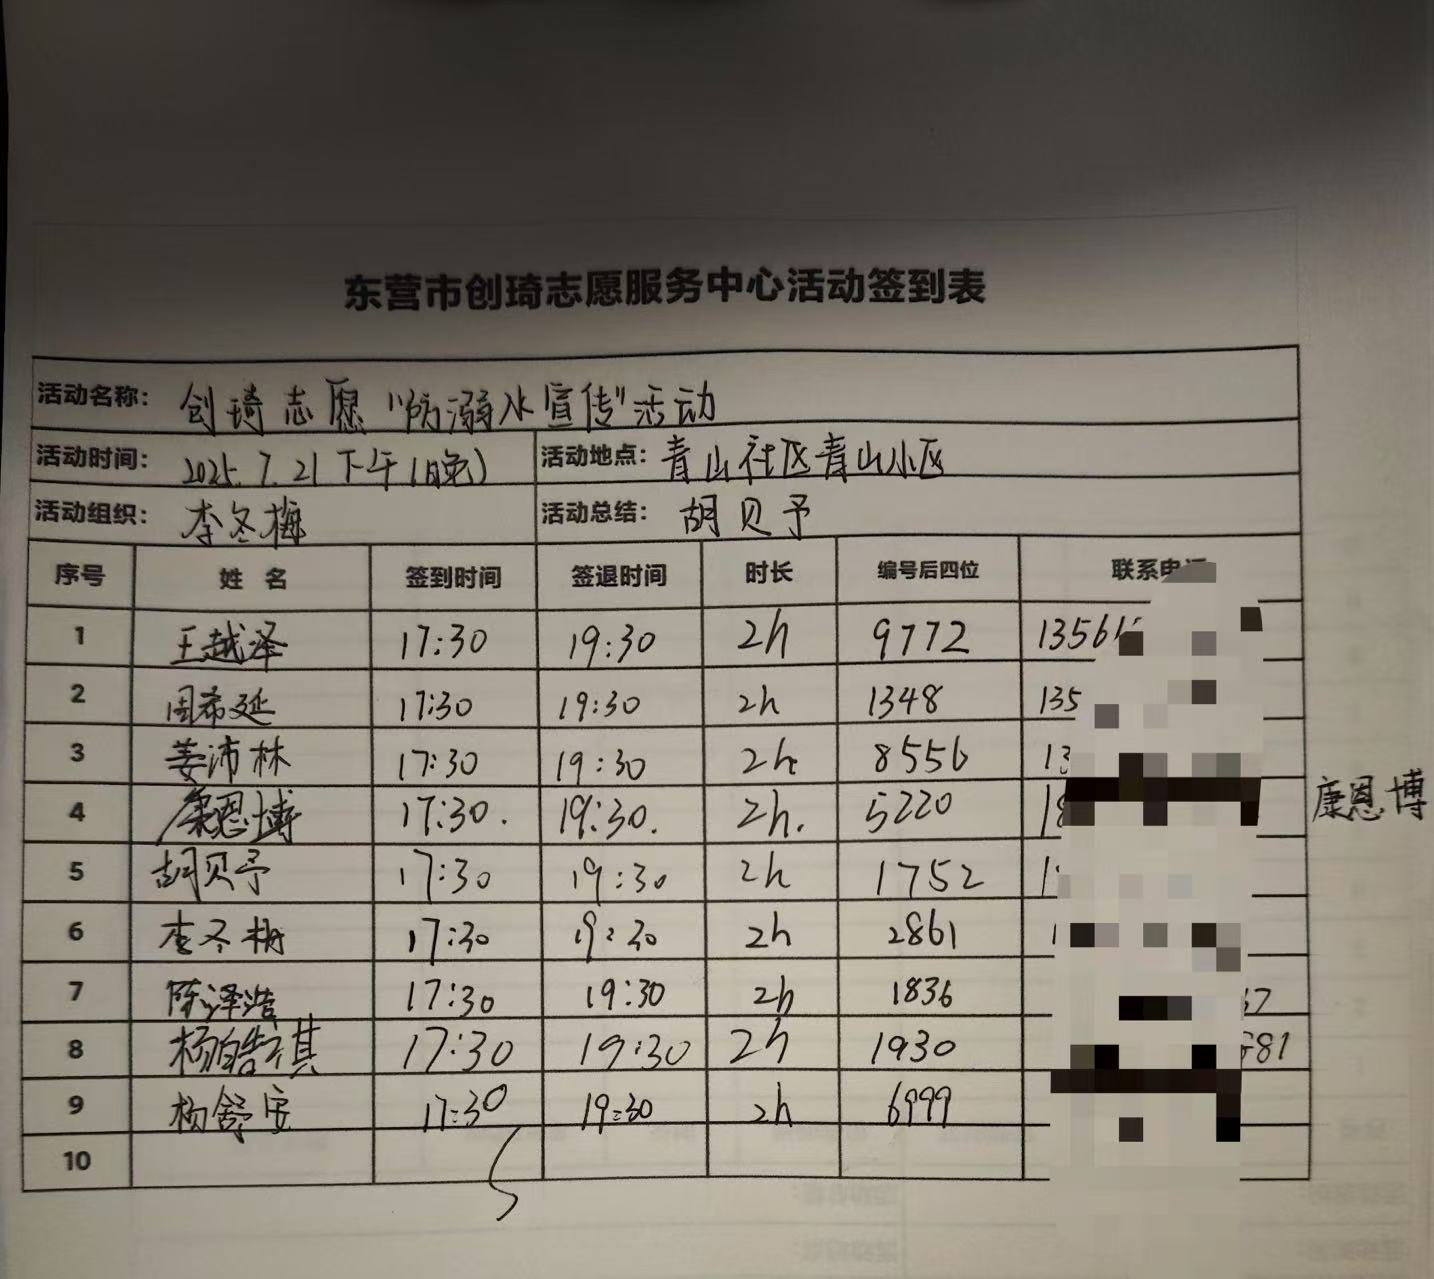 东营市创琦志愿服务中心活动签到表
活动名称： 创琦志愿“防溺水宣传”活动
活动时间： 2025.7.21下午(晚) 活动地点： 青山社区青山小区
活动组织： 李冬梅 活动总结： 胡贝予
序号 姓名 签到时间 签退时间 时长 编号后四位 联系电
1 王越泽 17:30 19:30 2h 9772 1356
2 周希延 17:30 19:30 2h 1348 135
3 姜沛林 17:30 19:30 2h 8556 13
4 康恩博 17:30. 19:30. 2h. 5220 18 康恩博
5 胡贝予 17:30 19:30 2h 1752 1
6 李冬梅 17:30 19:30 2h 2861 1
7 陈泽浩 17:30 19:30 2h 1836 7
8 杨皓祺 17:30 19:30 2h 1930 81
9 杨舒安 17:30 19:30 2h 6999
10